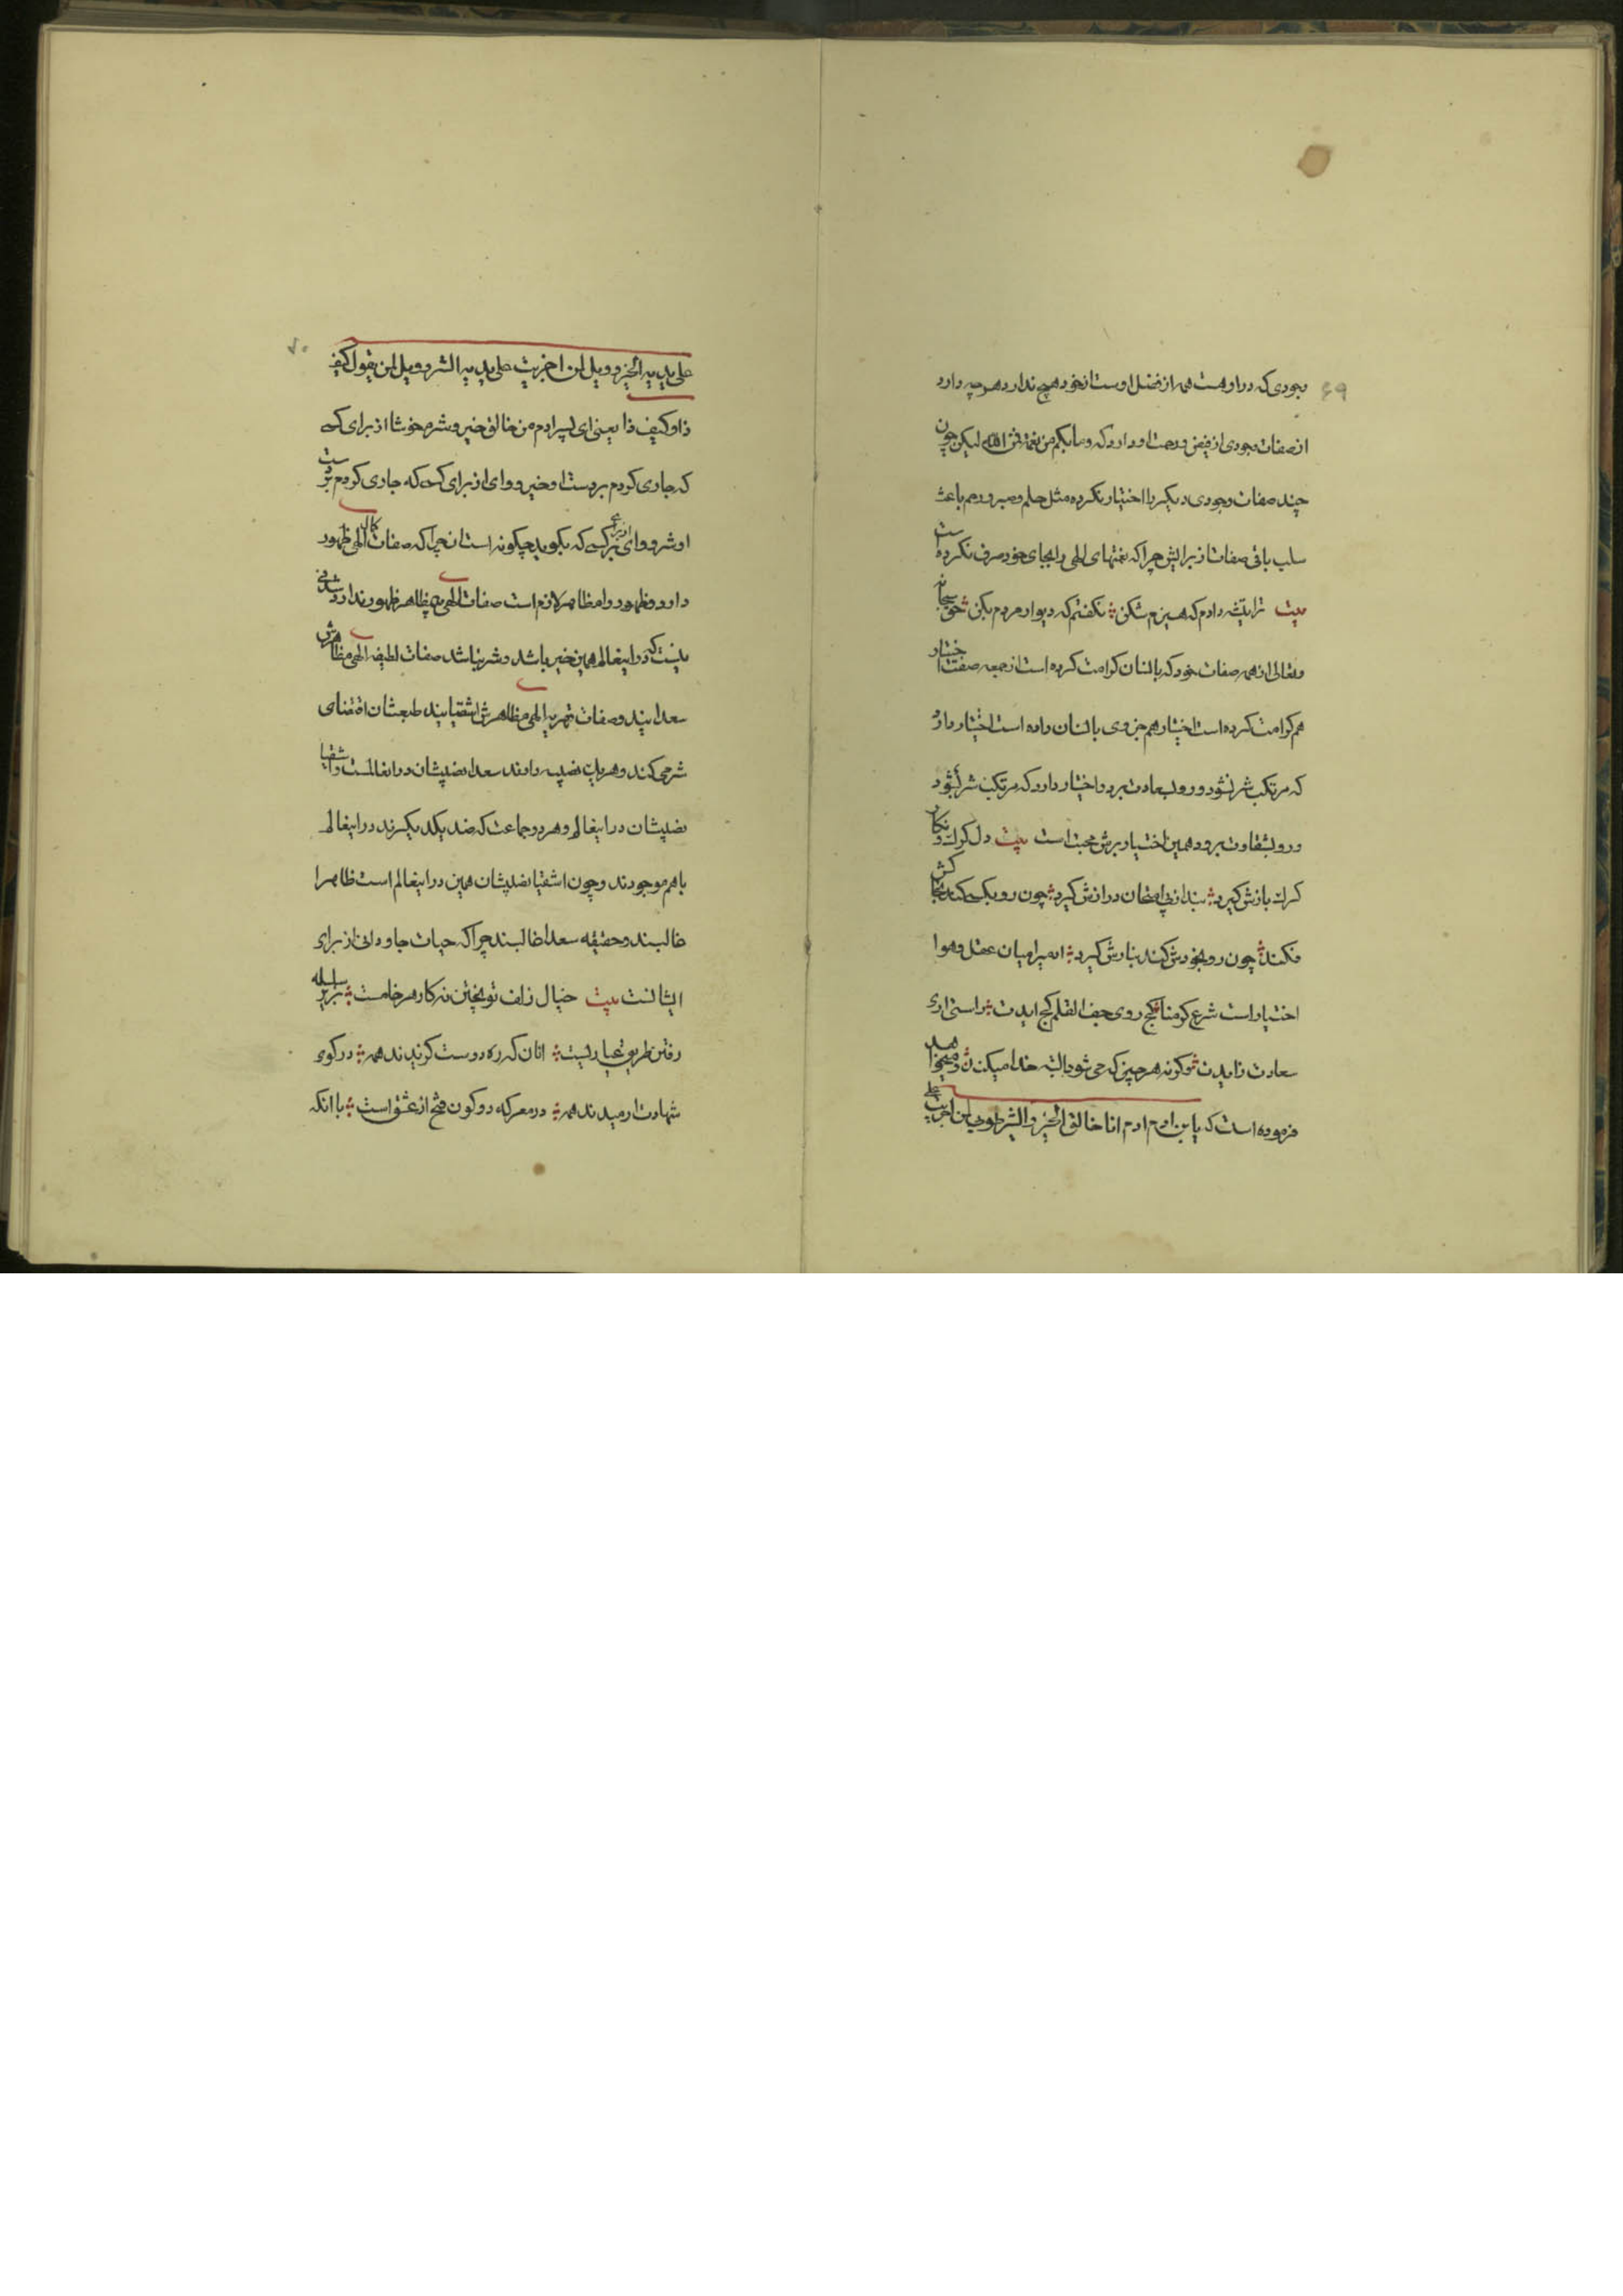 ۶۹
وجودی که در او هست همه از فضل اوست از خود هیچ ندارد هر چه دارد
از صفات وجودی از فیض و رحمت او دارد که و ما بکم من نعمة فمن الله لیکن چون
چند صفات وجودی دیگر را اختیار نکرده مثل حلم و صبر و رحم باعث
سلب باقی صفات از برایش چرا که نعمتهای الهی را بجای خود صرف نکرده ست
بیت ترا تیشه دادم که هیزم شکن نگفتم که دیوار مردم بکن حق سبحانه
و تعالی از همه صفات خود که بانسان کرامت کرده است از جمعه صفت اختیار
هم کرامت کرده است اختیار هم جزوی بانسان داده است اختیار دارد
که مرتکب شر نشود و رو بسعادت برد و اختیار دارد که مرتکب شر شود
و رو بشقاوت برد و همین اختیار برش محبت است بیت دل کو که
بازش گیرد چون رو بکسی کند
نکند چون رو بخودش کند بنازش گیرد امیرا میان عقل و هوا
اختیار است شرع کو مناکج روی جف القلم کج ایدت راستی اری
سعادت زایدت وگرنه هر چیزی که می شود البته خدا میکند و میخواهد
فرموده است که یا بن ادم انا خالق الخیر و الشر طوبی لمن اجریت علی
۷۰
علی یدیه الخیر و ویل لمن اجریت علی یدیه الشر و ویل لمن یقول کیف
ذا و کیف ذا یعنی ای پسر ادم من خالق خیر و شرم خوشا از برای کسی
که جاری کردم بر دست او خیر و وای از برای کسی که جاری کردم بر دست
او شر و وای از برای کسی که بگوید چگونه است ان چرا که صفات کمال الهی ظهور
دارد و ظهور را مظاهر لازم است صفات الهی بی مظاهر ظهور ندارد شدنی
نیست که در اینعالم همین خیر باشد و شر نباشد صفات لطیفه الهی مظاهرش
سعدایند و صفات قهریه الهی مظاهرش اشقیایند طبعشان اقتضای
شر می کند و هر یک نصیبه دارند سعدا نصیبشان در انعالمست و اشقیا
نصیبشان در اینعالم و هر دو جماعت که ضد یکدیگرند در اینعالم
باهم موجودند و چون اشقیا نصیبشان همین در اینعالم است ظاهرا
غالبند و حقیقه سعدا غالبند چرا که حیات جاودانی از برای
ایشانست بیت خیال زلف تو پختن نه کار هر خامست زیر سلسله
رفتن طریق عیاریست انان که ره دوست گزیدند همه در کوی
شهادت ارمیدند همه در معرکه دو کون فتح از عشق است با انکه